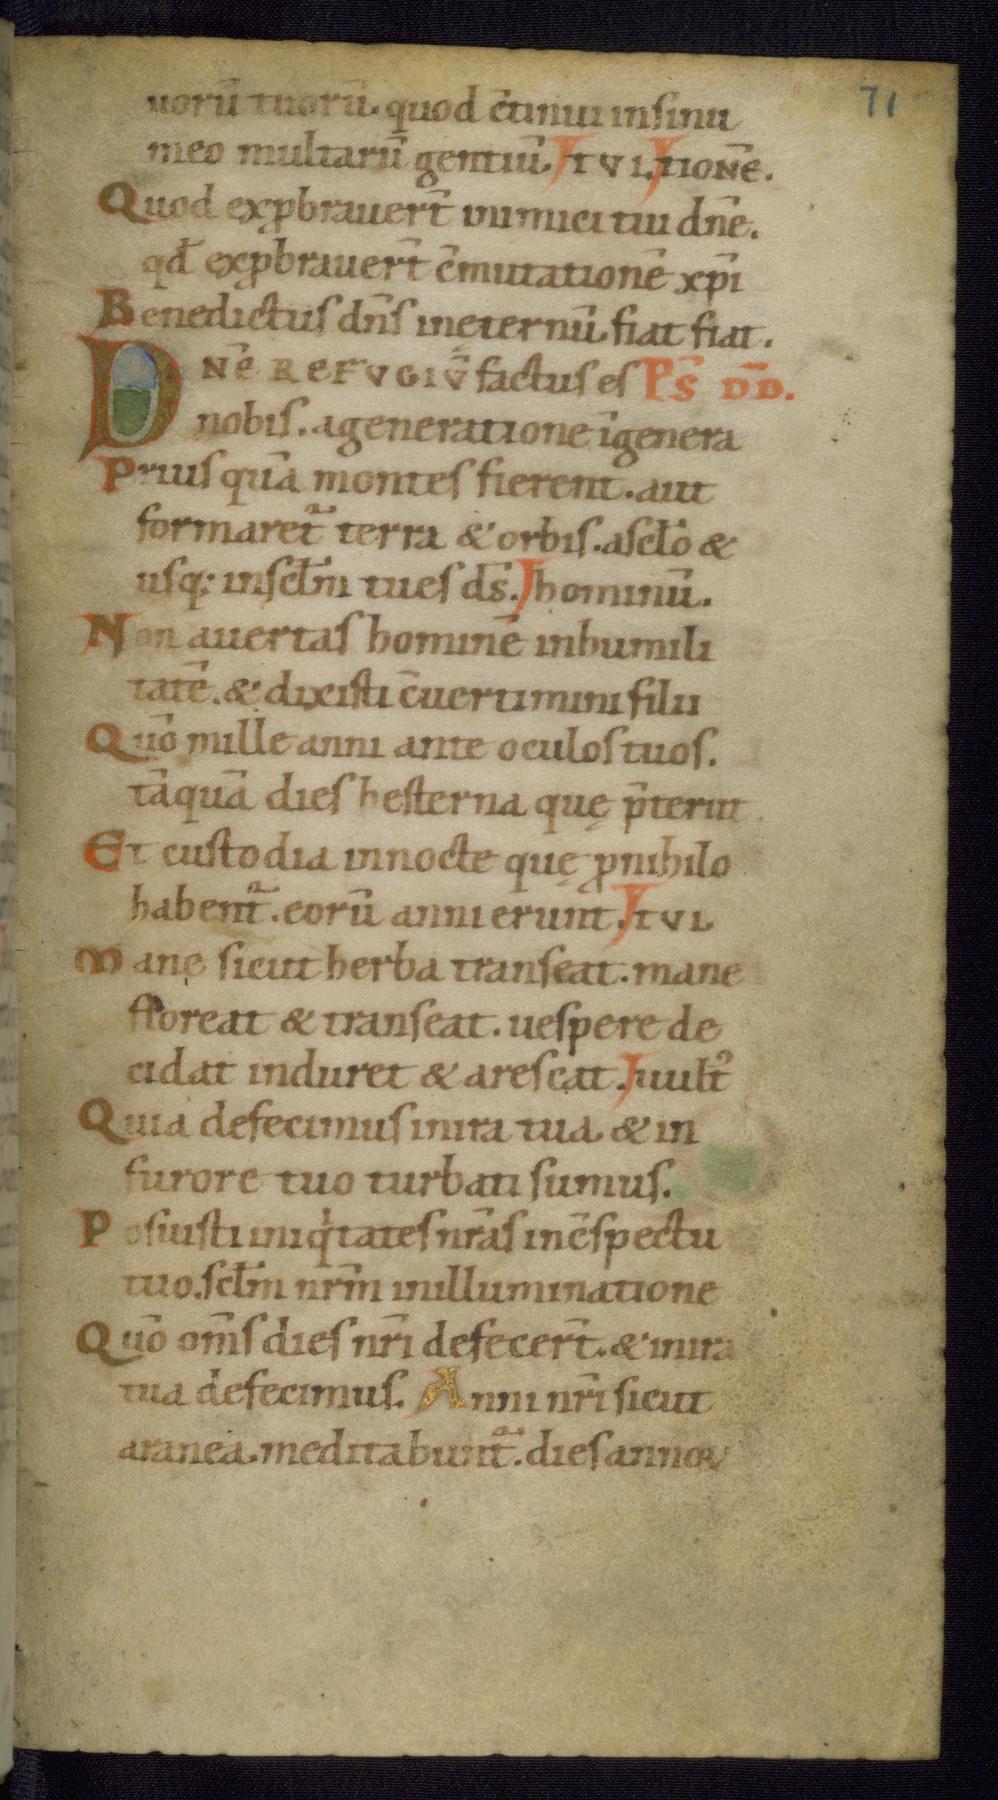 71
uorū tuorū. quod c̄tinui insinu
meo multarū gentiū. tui. tionē.
Quod exp̱brauer̄t inimici tui dn̄e.
qđ exp̱brauer̄t c̄mutationē xp̄i
Benedictus dn̄s inęternū. fiat fiat.
DNE REFUGIŪ factus es Ps̄ DD.
nobis. ageneratione īgenera
Priusquā montes fierent. aut
formaret᷑ terra & orbis. ascl̄o &
usq; inscl̄m tu es ds̄. hominū.
Non auertas hominē inhumili
tatē. & dixisti c̄uertimini filii
Quō mille anni ante oculos tuos.
tāquā dies hesterna quę p̄teriit
Et custodia innocte quę p̱nihilo
habent᷑. eorū anni erunt. tui
Mane sicut herba transeat. mane
floreat & transeat. uespere de
cidat induret & arescat.
Quia defecimus inira tua. & in
furore tuo turbati sumus.
Posuisti iniqitates nr̄as inc̄spectu
tuo. scl̄m nr̄m inilluminatione
Quō om̄s dies nr̄i defecer̄t. & inira
tua defecimus. Anni nr̄i sicut
aranea. meditabunt᷑. dies anno